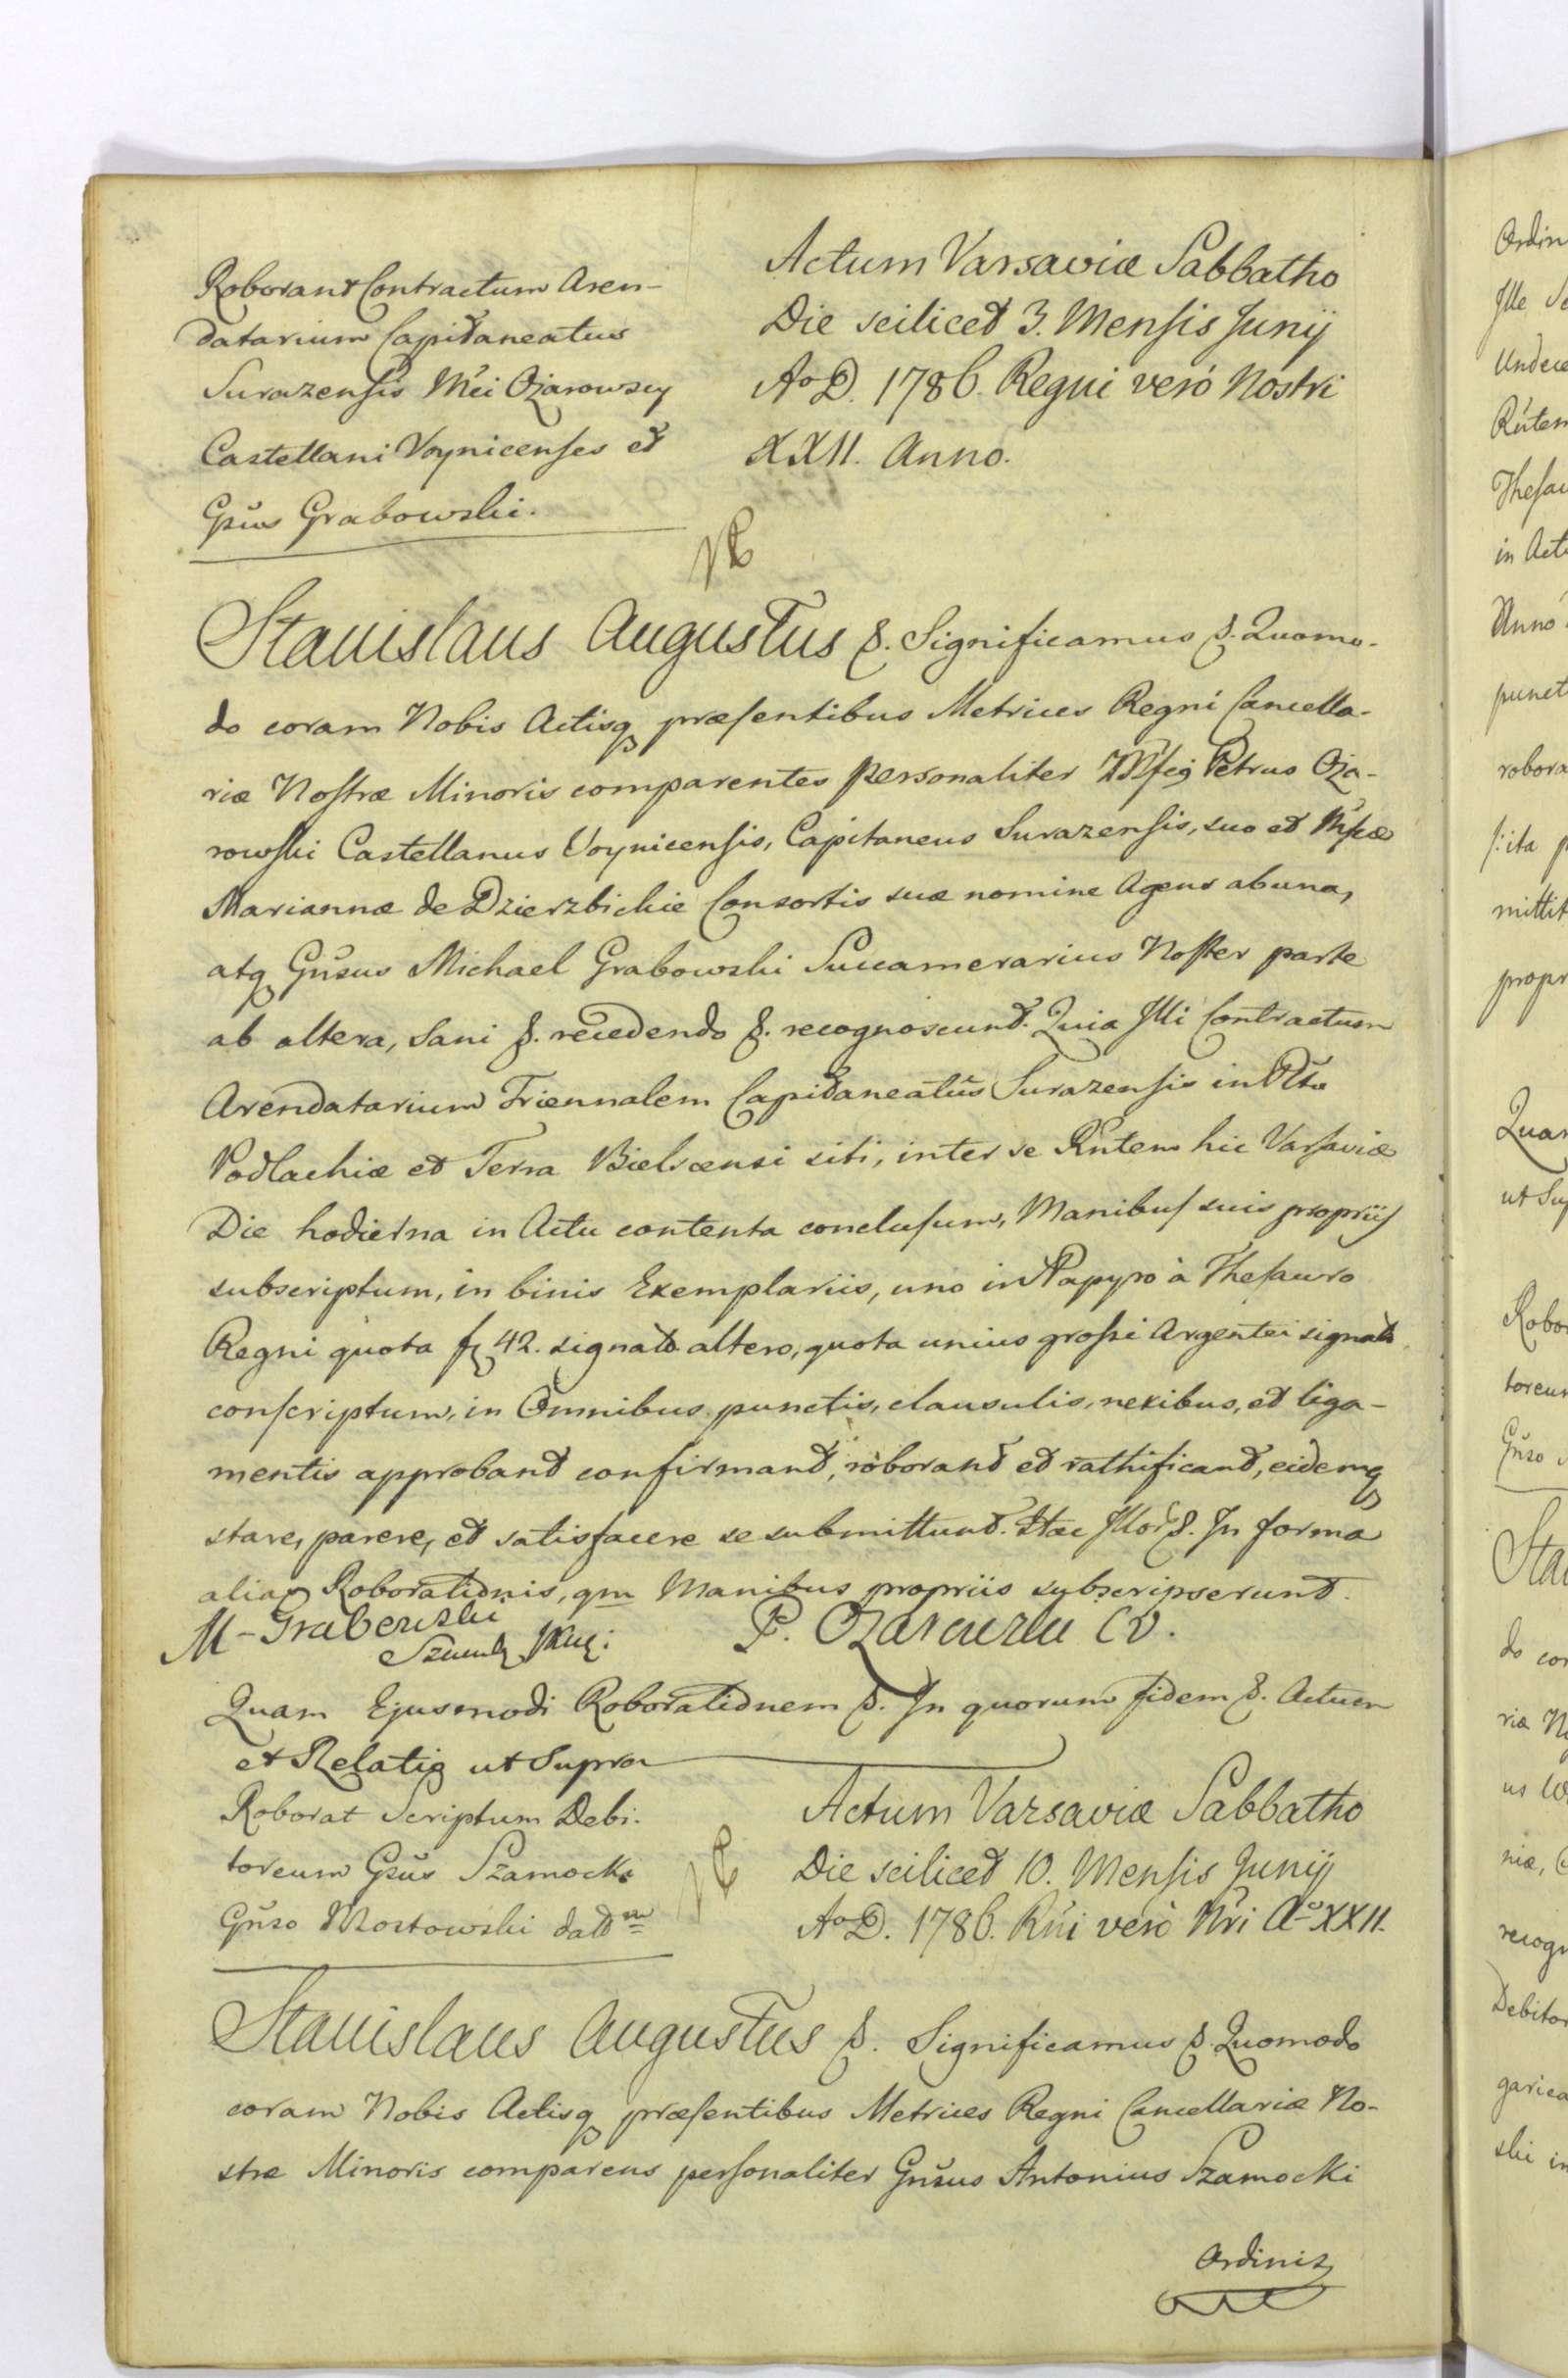 Roborant Contractum Aren-
datarium Capitaneatus
Surazensis Mci Ożarowscy
Castellani Voynicenses et
Gsus Grabowski.
Actum Varsaviæ Sabbatho
Die scilicet 3. Mensis Junij
Ao D. 1786. Regni verò Nostri
XXII. Anno.
Stanislaus Augustus &. Significamus &. Quomo-
do coram Nobis Actisq præsentibus Metrices Regni Cancella-
riæ Nostræ Minoris comparentes personaliter Petrus Oża-
rowski Castellanus Voynicensis, Capitaneus Surazensis, suo et Mfcæ
Mariannæ de Dzierzbickie Consortis suæ nomine Agens ab una,
atq Gnsus Michael Grabowski Succamerarius Noster parte
ab altera, Sani &. recedendo &. recognoscunt. Quia Illi Contractum
Arendatarium Triennalem Capitaneatûs Surazensis in Pltu
Podlachiæ et Terra Bielscensi siti, inter se Rntem hic Varsaviæ
Die hodierna in Actu contenta conclusum, Manibus suis propriis
subscriptum, in binis Exemplariis, uno in Papyro à Thesauro
Regni quota fl 42. signato altero, quota unius grossi Argentei signato
conscriptum, in Omnibus punctis, clausulis, nexibus, et liga-
mentis approbant confirmant, roborant et rathificant, eidemq
stare, parere, et satisfacere se submittunt. Hac Illor &. In forma
alias Roborationis, qm Manibus propriis subscripserunt.
M-Grabowski
P. Ożarowski CV.
Quam Ejusmodi Roborationem &. In quorum fidem &. Actum
et Relatio ut Supra
Roborat Scriptum Debi-
toreum Gsus Szamocki
Gnso Mostowski datm
Actum Varsaviæ Sabbatho
Die scilicet 10. Mensis Junij
Ao D. 1786. Rni verò Nri Ao XXII.
Stanislaus Augustus &. Significamus &. Quomodo
coram Nobis Actisq præsentibus Metrices Regni Cancellariæ No-
stræ Minoris comparens personaliter Gnsus Antonius Szamocki
Ordinis